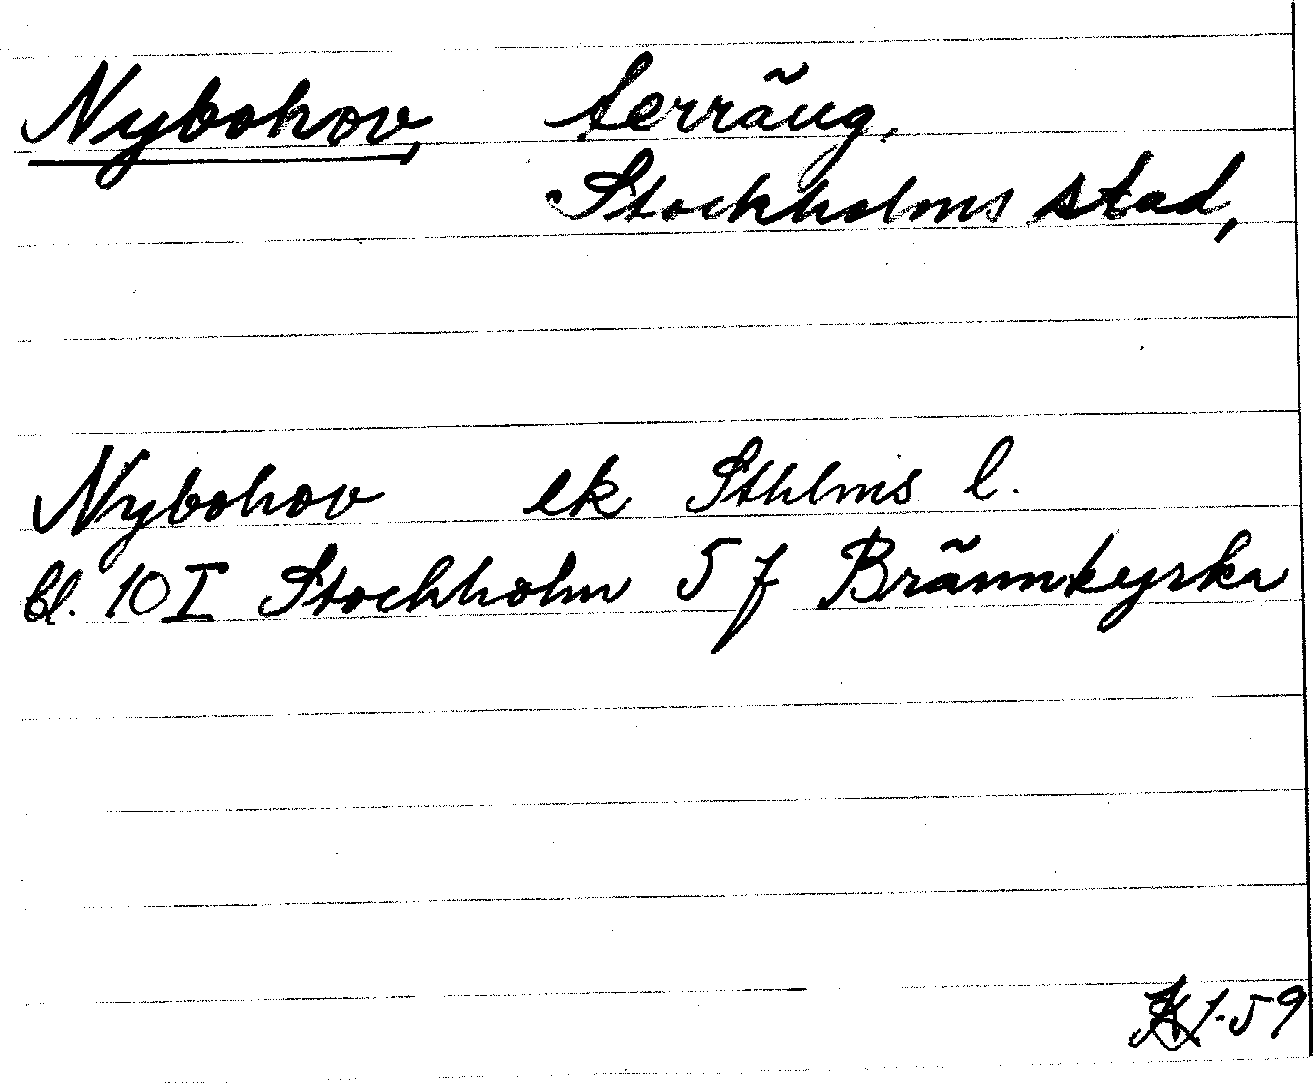 Nybohov, terräng,
Stockholms stad,
Nybohov ek Sthlms l.
bl. 10 I Stockholm 5 f Brännkyrka
1-59